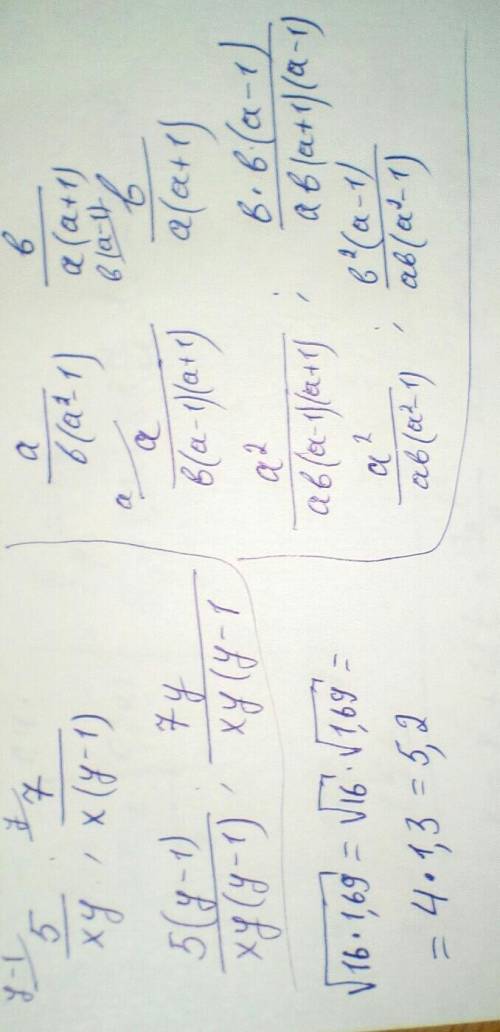 y-1 y
5/xy , 7/x(y-1)
5(y-1)/xy(y-1) , 7y/xy(y-1
√16·1,69 = √16 · √1,69 =
= 4·1,3 = 5,2
a/в(a²-1) в/a(a+1)
a в(a-1)
a/в(a-1)(a+1) в/a(a+1)
a²/aв(a-1)(a+1) ; в·в·(a-1)/aв(a+1)(a-1)
a²/aв(a²-1) ; в²(a-1)/aв(a²-1)